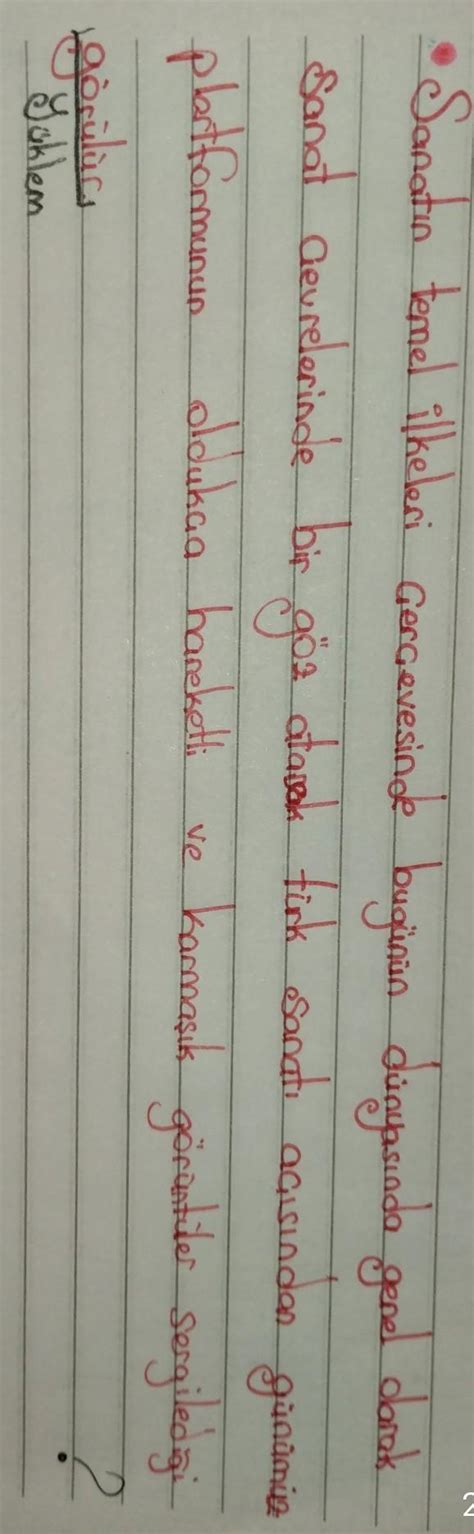 • Sanatın temel ilkeleri çerçevesinde bugünün dünyasında genel olarak
Sanat çevrelerinde bir göz atarak türk sanatı açısından günümüz
platformunun oldukça hareketli ve karmaşık görüntüler sergilediği
görülür. ?
yüklem
2